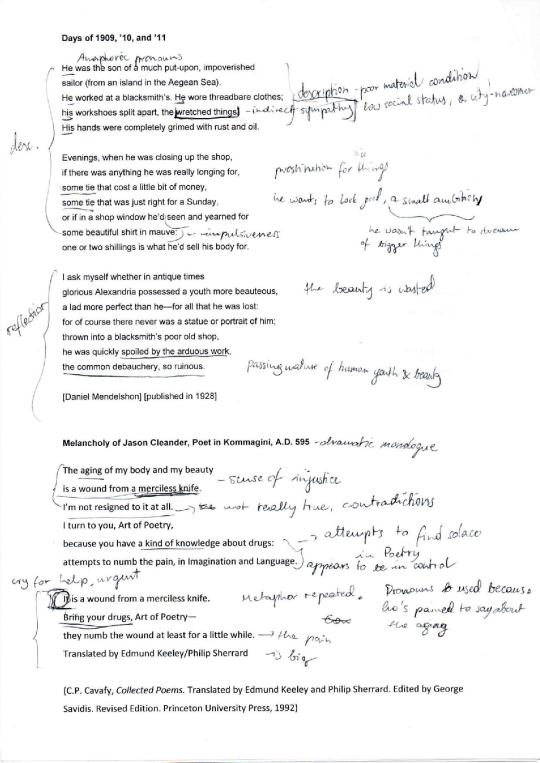 Days of 1909, '10, and '11
Anaphoric pronouns
He was the son of a much put-upon, impoverished
sailor (from an island in the Aegean Sea).
He worked at a blacksmith's. He wore threadbare clothes;
his workshoes split apart, the wretched things
His hands were completely grimed with rust and oil.
description - poor material condition
- indirect sympathy
low social status, a city-
desc.
Evenings, when he was closing up the shop,
if there was anything he was really longing for,
some tie that cost a little bit of money,
some tie that was just right for a Sunday,
or if in a shop window he'd seen and yearned for
some beautiful shirt in mauve: - impulsiveness
one or two shillings is what he'd sell his body for.
nice
prostitution for things
he wants to look good, a small ambition
he wasn't taught to dream
of bigger things
I ask myself whether in antique times
glorious Alexandria possessed a youth more beauteous,
a lad more perfect than he—for all that he was lost:
for of course there never was a statue or portrait of him;
thrown into a blacksmith's poor old shop,
he was quickly spoiled by the arduous work,
the common debauchery, so ruinous.
the beauty is wasted
reflection
passing nature of human youth & beauty
[Daniel Mendelshon] [published in 1928]
Melancholy of Jason Cleander, Poet in Kommagini, A.D. 595 - dramatic monologue
The aging of my body and my beauty
is a wound from a merciless knife.
- sense of injustice
I'm not resigned to it at all. → not really true, contradictions
I turn to you, Art of Poetry,
because you have a kind of knowledge about drugs:
attempts to numb the pain, in Imagination and Language.
→ attempts to find solace
in Poetry
appears to be in control
cry for help, urgent
It is a wound from a merciless knife.
Bring your drugs, Art of Poetry—
they numb the wound at least for a little while. → the pain
is big
Metaphor repeated.
Pronouns is used because
he's pained to say about
the aging
Translated by Edmund Keeley/Philip Sherrard
(C.P. Cavafy, Collected Poems. Translated by Edmund Keeley and Philip Sherrard. Edited by George
Savidis. Revised Edition. Princeton University Press, 1992)